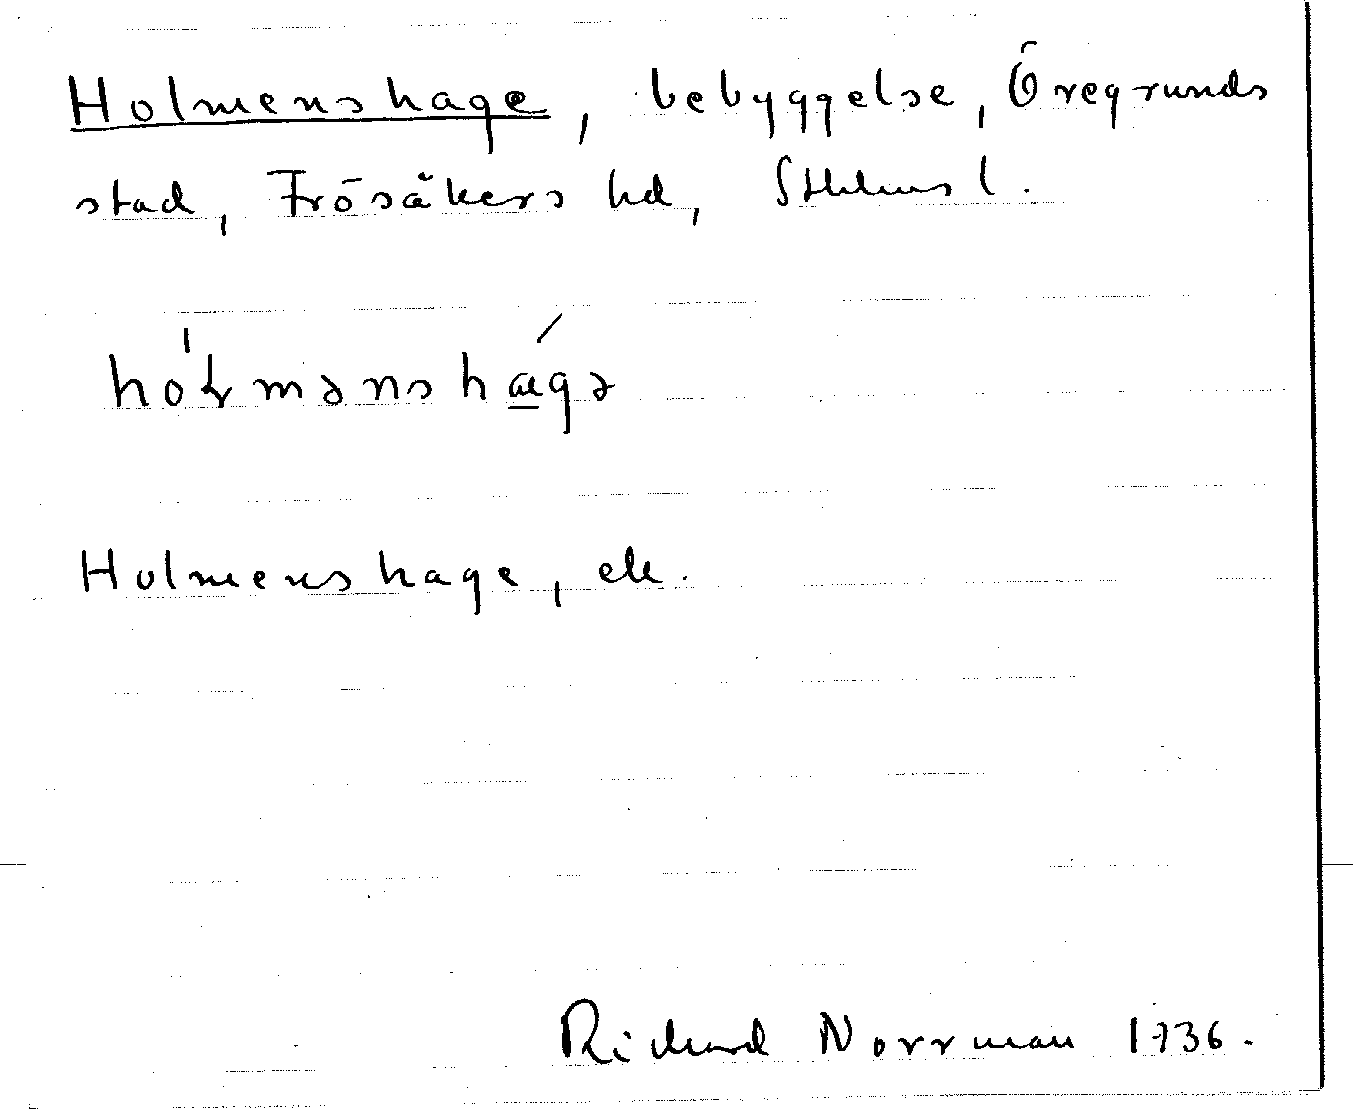 Holmenshage, bebyggelse, Öregrunds
stad, Frösåkers hd, Sthlms l.
hóɫmənshægə
Holmenshage, ek.
Richard Norrman 1936.